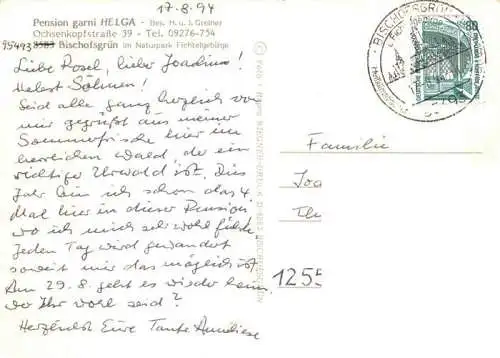 17.8.94
Pension garni HELGA - Bes. H. u. I. Greiner
Ochsenkopfstraße 39 - Tel. 09276-754
95493 8583 Bischofsgrün im Naturpark Fichtelgebirge
Liebe Rosel, lieber Joachim!
Nebst Söhnen!
Seid alle ganz herzlich von
mir gegrüßt aus meiner
Sommerfrische hier im
herrlichen Wald, der ein
richtiger Urwald ist. Dies
Jahr bin ich schon das 4.
Mal hier in dieser Pension
wo ich mich sehr wohl fühle.
Jeden Tag wird gewandert
soweit mir das möglich ist
Am 29.8. geht es wieder heim
Ihr wohl seid?
Herzlichst Eure Tante
BISCHOFSGRÜN
80
Familie
125